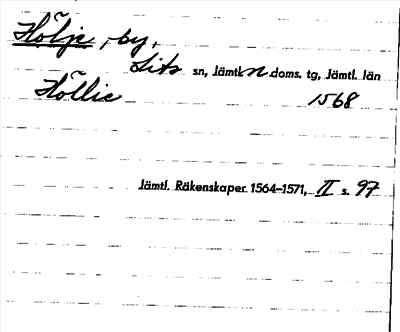 Hölje, by,
Lits sn, Jämtl. n. doms. tg, Jämtl. län
Höllie 1568
Jämtl. Räkenskaper 1564–1571, II s. 97